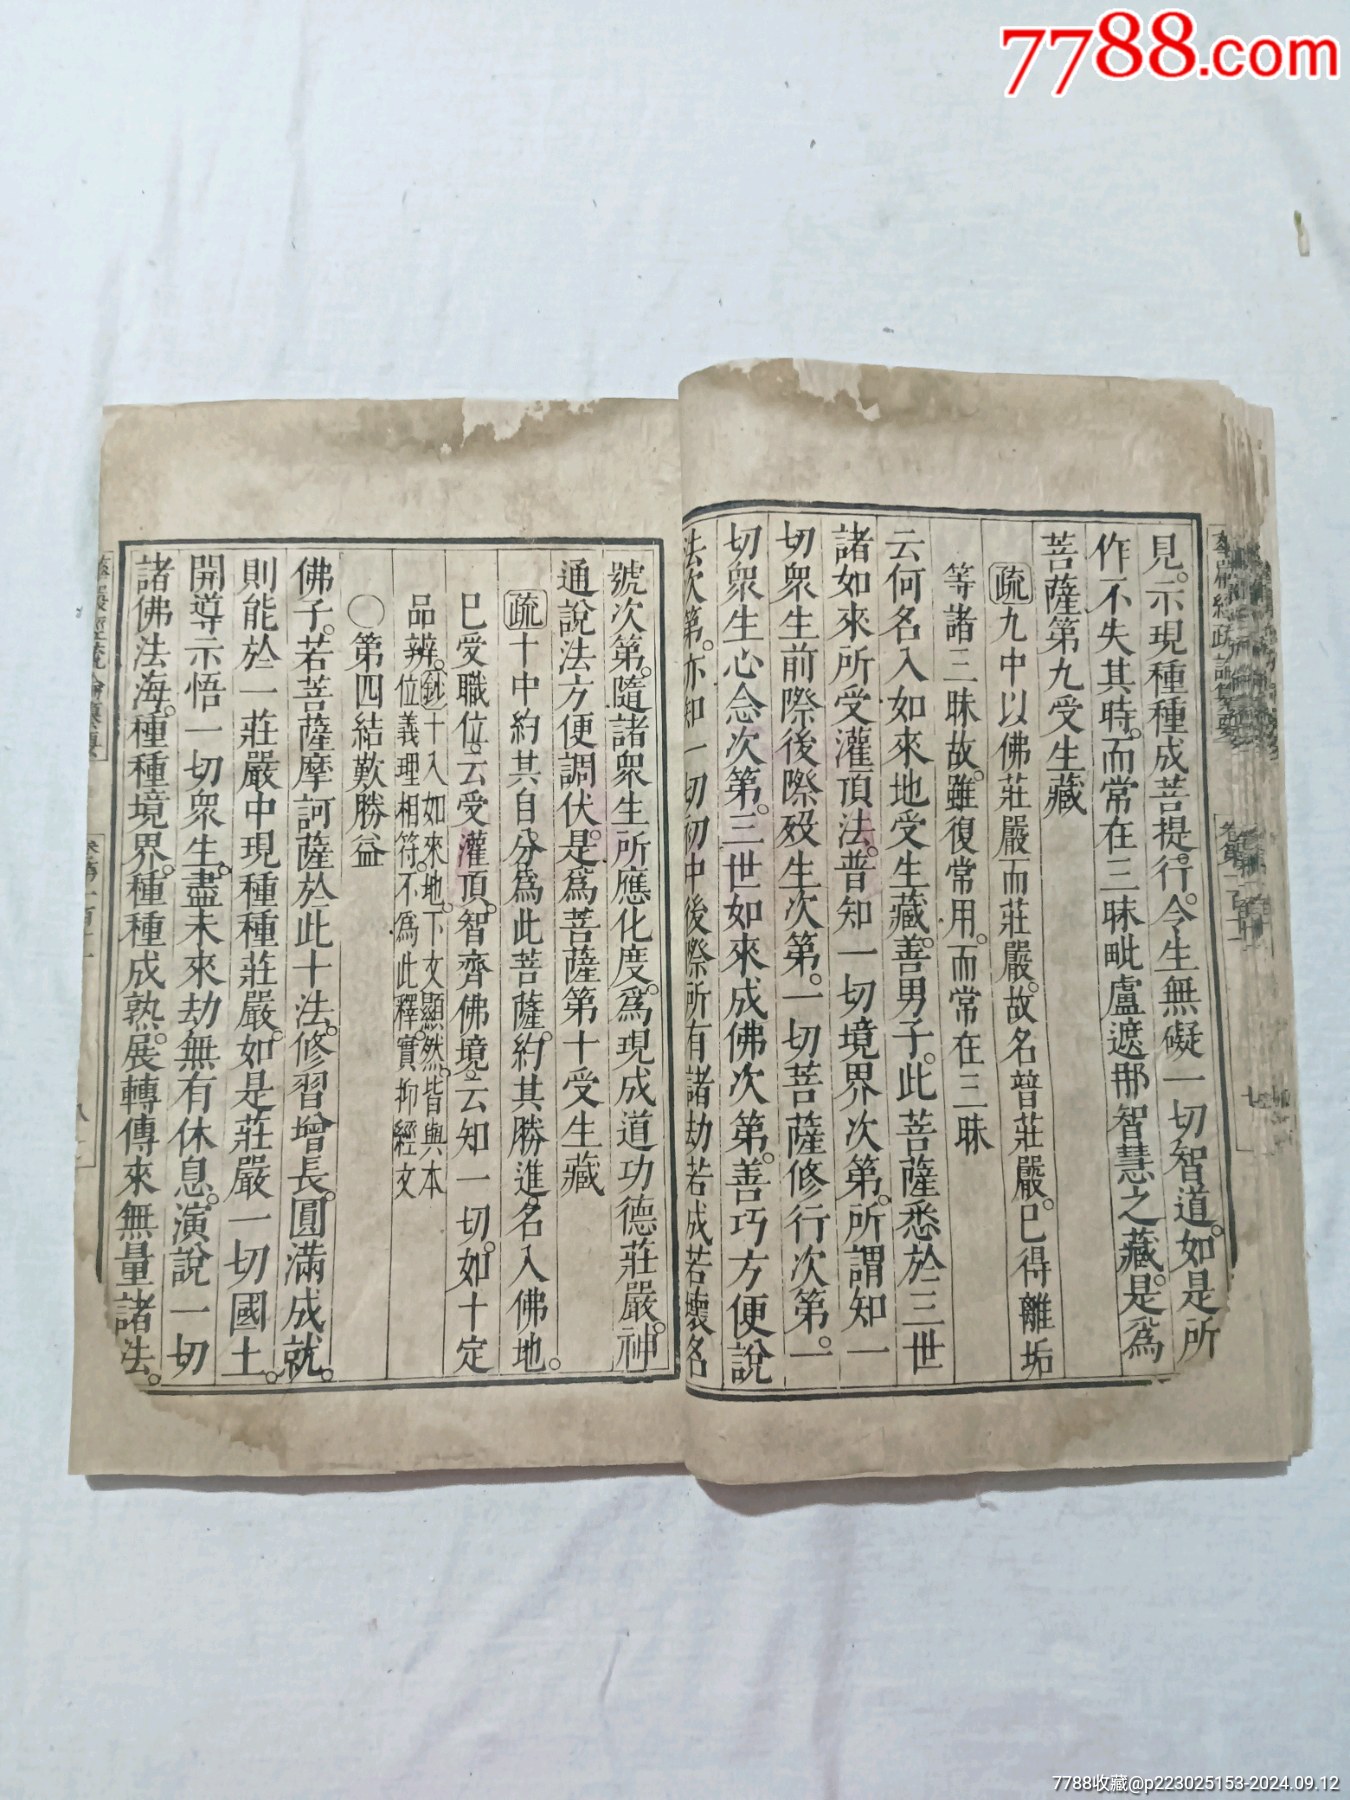 7788.com
見。示現種種成菩提行。今生無礙一切智道。如是所
作不失其時。而常在三昧毗盧遮那智慧之藏。是為
菩薩第九受生藏
疏九中以佛莊嚴而莊嚴。故名普莊嚴。已得離垢
等諸三昧故。雖復常用。而常在三昧
云何名入如來地受生藏。善男子。此菩薩悉於三世
諸如來所受灌頂法。普知一切境界次第。所謂知一
切眾生前際後際歿生次第。一切菩薩修行次第。一
切眾生心念次第。三世如來成佛次第。善巧方便說
法次第。亦知一切初中後際所有諸劫若成若壞名
號次第。隨諸眾生所應化度。為現成道功德莊嚴。神
通說法方便調伏。是為菩薩第十受生藏
疏十中約其自分。為此菩薩。約其勝進。名入佛地。
已受職位。云受灌頂。智齊佛境。云知一切。如十定
品辨。鈔十入如來地。下文顯然。皆與本
位義理相符。不為此釋。實抑經文
○第四結歎勝益
佛子。若菩薩摩訶薩於此十法。修習增長。圓滿成就。
則能於一莊嚴中現種種莊嚴。如是莊嚴一切國土。
開導示悟一切眾生。盡未來劫無有休息。演說一切
諸佛法海。種種境界。種種成熟。展轉傳來無量諸法。
華嚴經疏論纂要
卷第一百十一
七
八
7788收藏@p223025153-2024.09.12